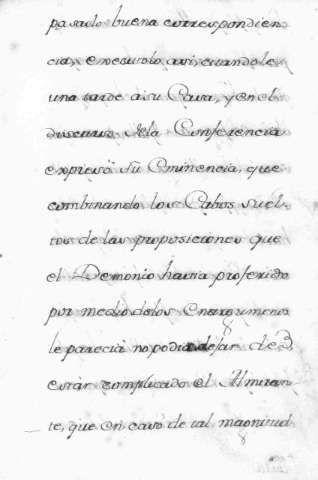 pasado buena correspondien
cia, executolo asi, embiandole
una tarde a su Casa, y en el
discurso de la Conferencia
expresò su Eminencia, que
combinando los Cabos suel-
tos de las proposiciones que
el Demonio havia proferido
por medio de los Energumenos
le parecia no podia dejar de
estàr complicado el Almiran-
te, que en caso de tal magnitud